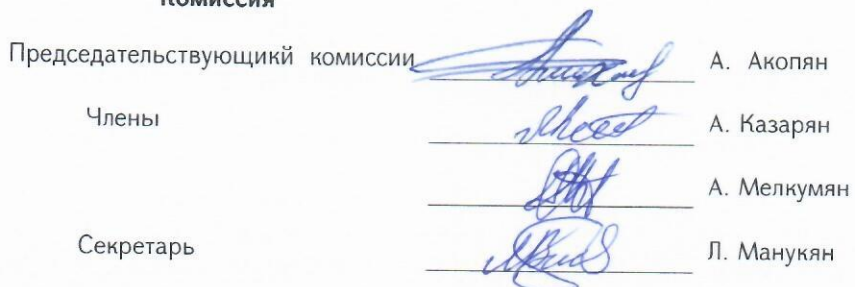 Комиссия
Председательствующикй комиссии А. Акопян
Члены А. Казарян
А. Мелкумян
Секретарь Л. Манукян